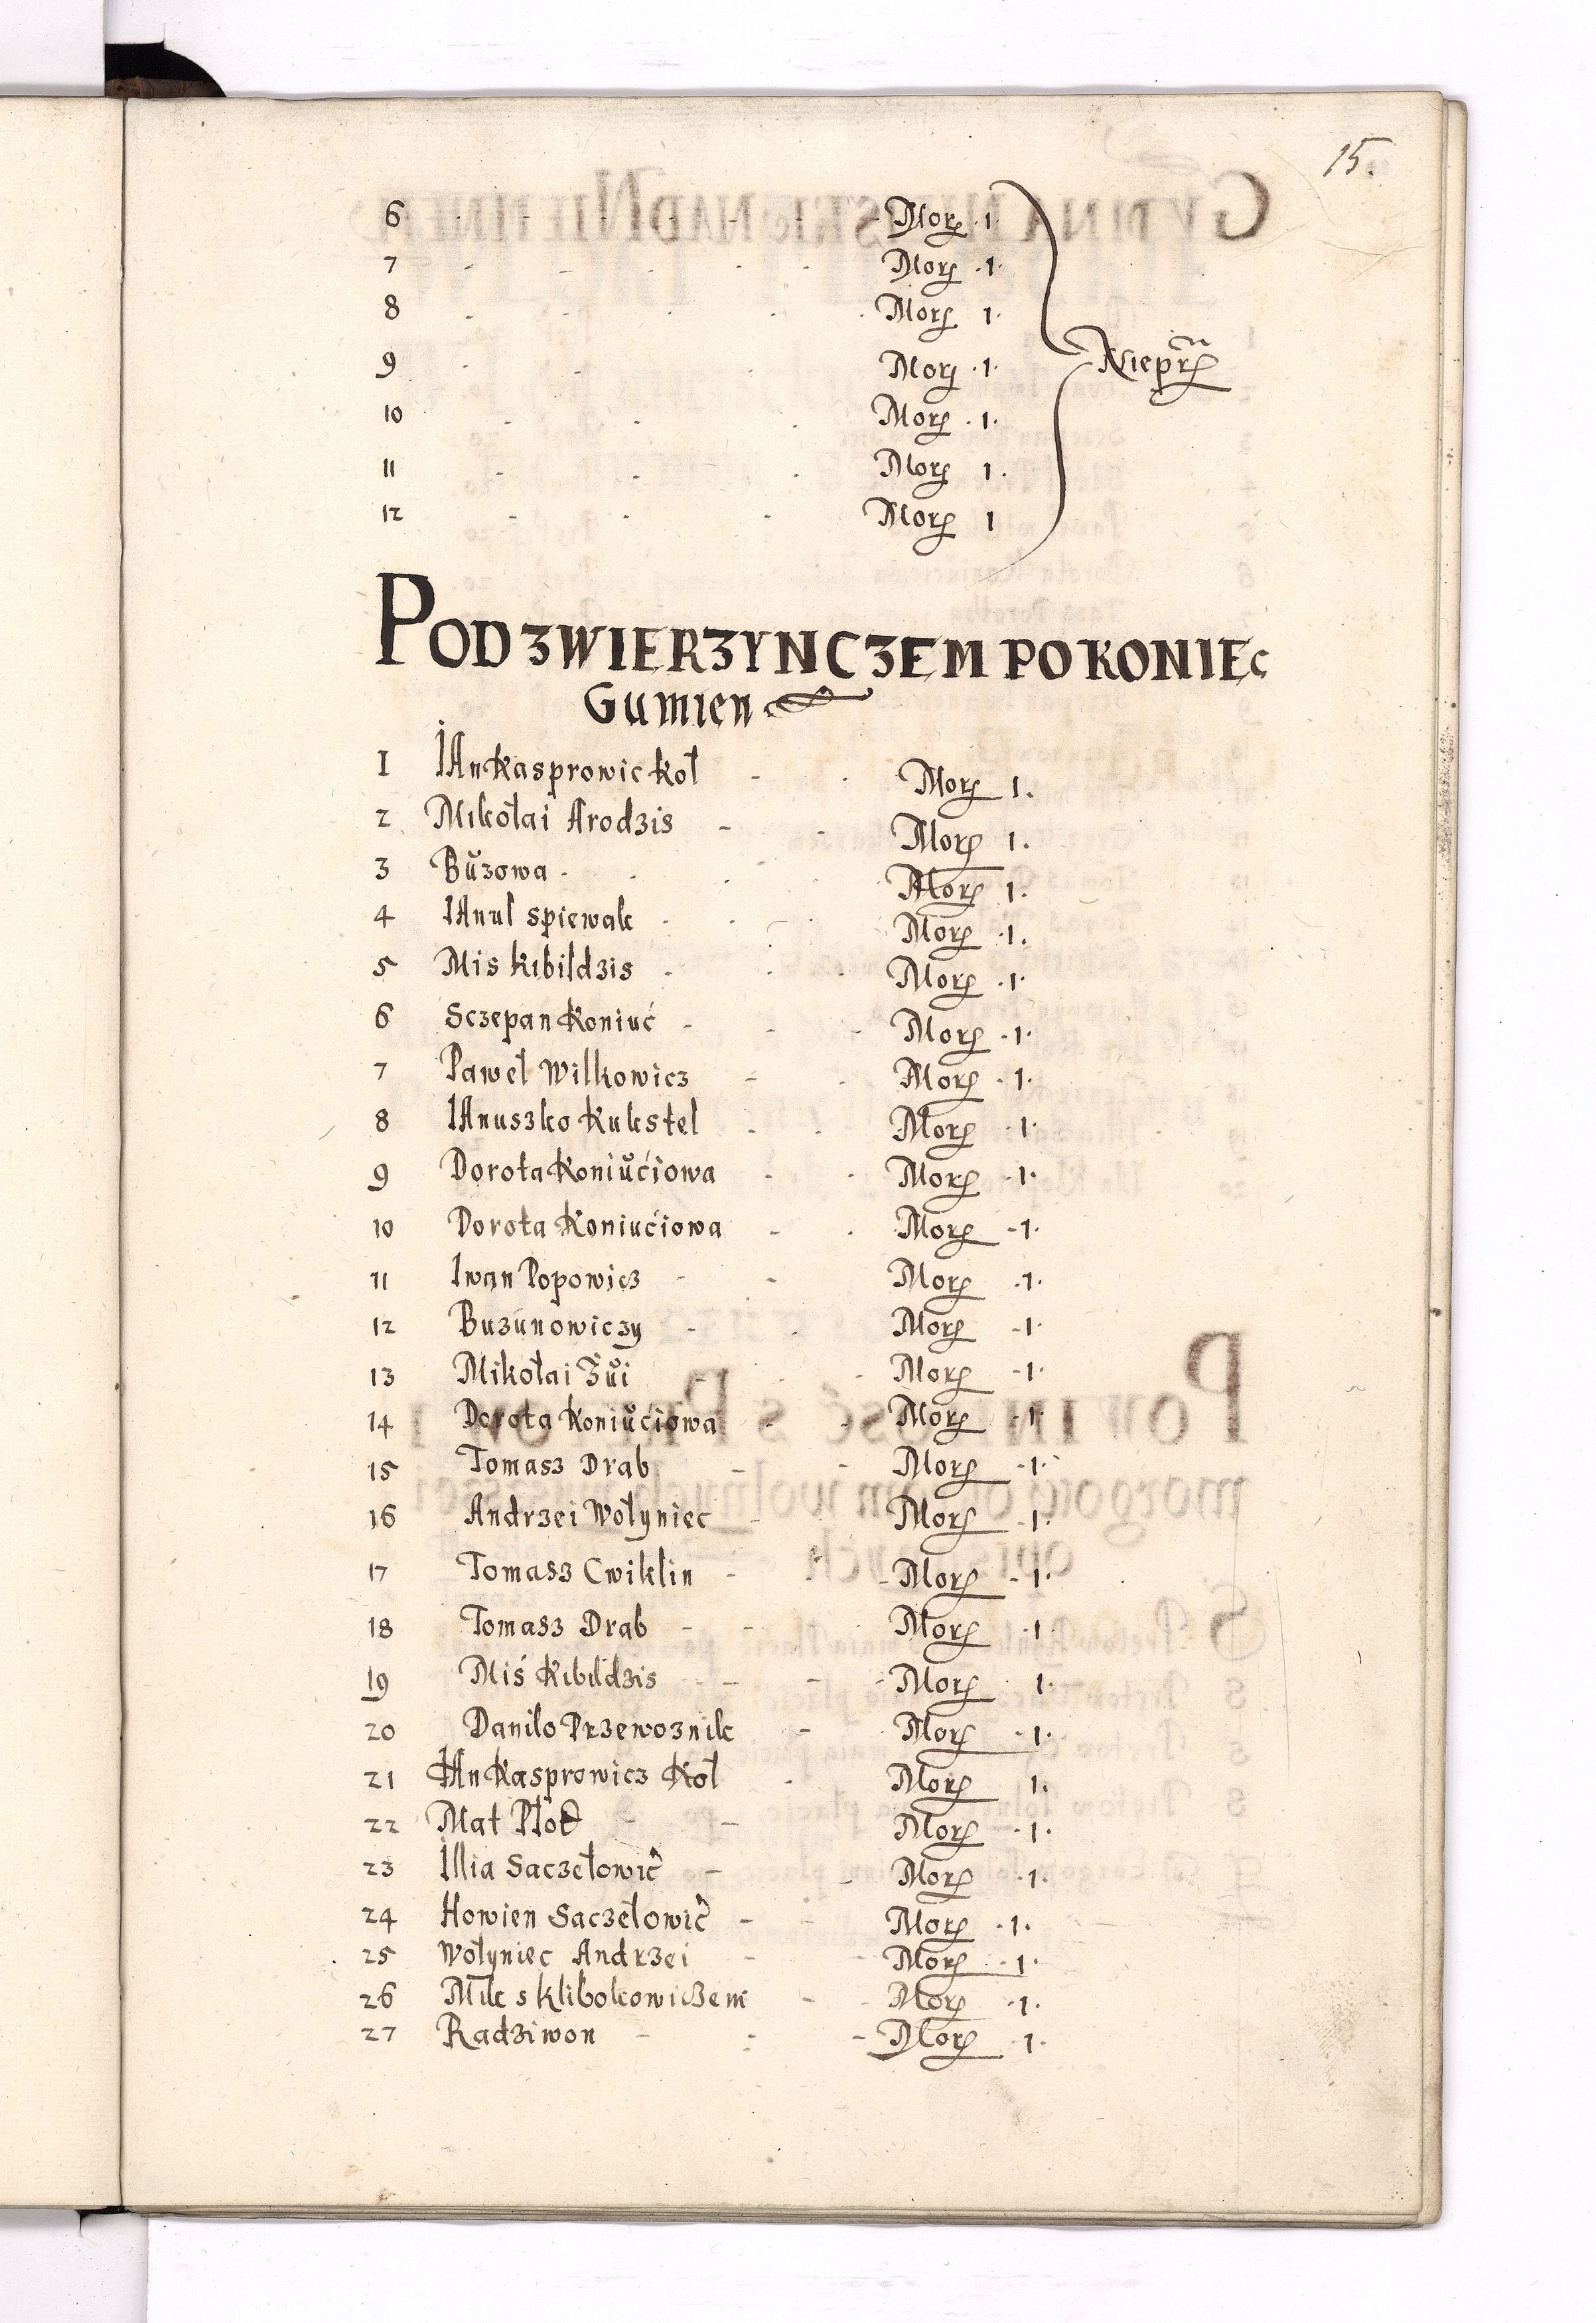 15.
6 Morg 1
7 Morg 1
8 Morg 1
9 Morg 1
10 Morg 1
11 Morg 1
12 Morg 1
POD ZWIERZYNCZEM PO KONIEC
Gumien
1 IAn Kasprowic Koł Morg 1.
2 Mikołai Arodzis Morg 1.
3 Bŭzowa Morg 1.
4 IAnul spiewak Morg 1.
5 Mis kibildzis Morg 1.
6 Sczepan Koniuć Morg 1.
7 Paweł Wilkowicz Morg 1.
8 IAnuszko Kukstel Morg 1.
9 Dorota Koniŭćiowa Morg 1.
10 Dorota Koniućiowa Morg 1.
11 Iwan Popowicz Morg 1.
12 Buzunowiczy Morg 1.
13 Mikołai Morg 1.
14 Dorota Koniŭciowa Morg 1.
15 Tomasz Drab Morg 1.
16 Andrzei Wołyniec Morg 1.
17 Tomasz Cwiklin Morg 1.
18 Tomasz Drab Morg 1.
19 Miś Kibildzis Morg 1.
20 Danilo Przewoznik Morg 1.
21 IAn Kasprowicz Koł Morg 1.
22 Mat Morg 1.
23 Illia Saczełowic Morg 1.
24 Howien Saczełowic Morg 1.
25 Wołyniec Andrzei Morg 1.
26 Mik s klibokowiczem Morg 1.
27 Radziwon Morg 1.